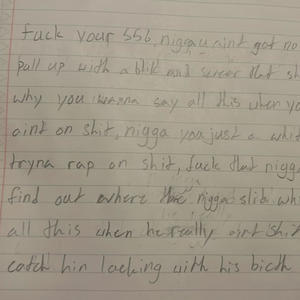 fuck your 556, nigga u aint got no
pull up with a blik and swear that sh
why you wanna say all this when yo
aint on shit, nigga you just a whit
tryna rap on shit, fuck that nigg
find out where the nigga slid wh
all this when he really aint shit
catch him lacking with his bicth